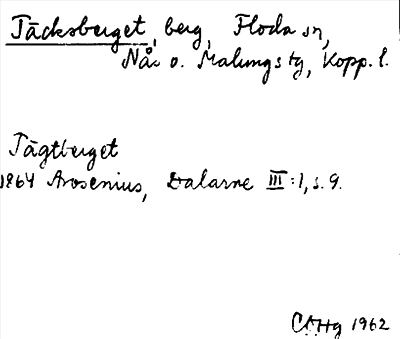 Täcksberget, berg, Floda sn,
Nås o. Malungs tg, Kopp. l.
Tägtberget
1864 Arosenius, Dalarne III:1, s. 9.
CAHg 1962